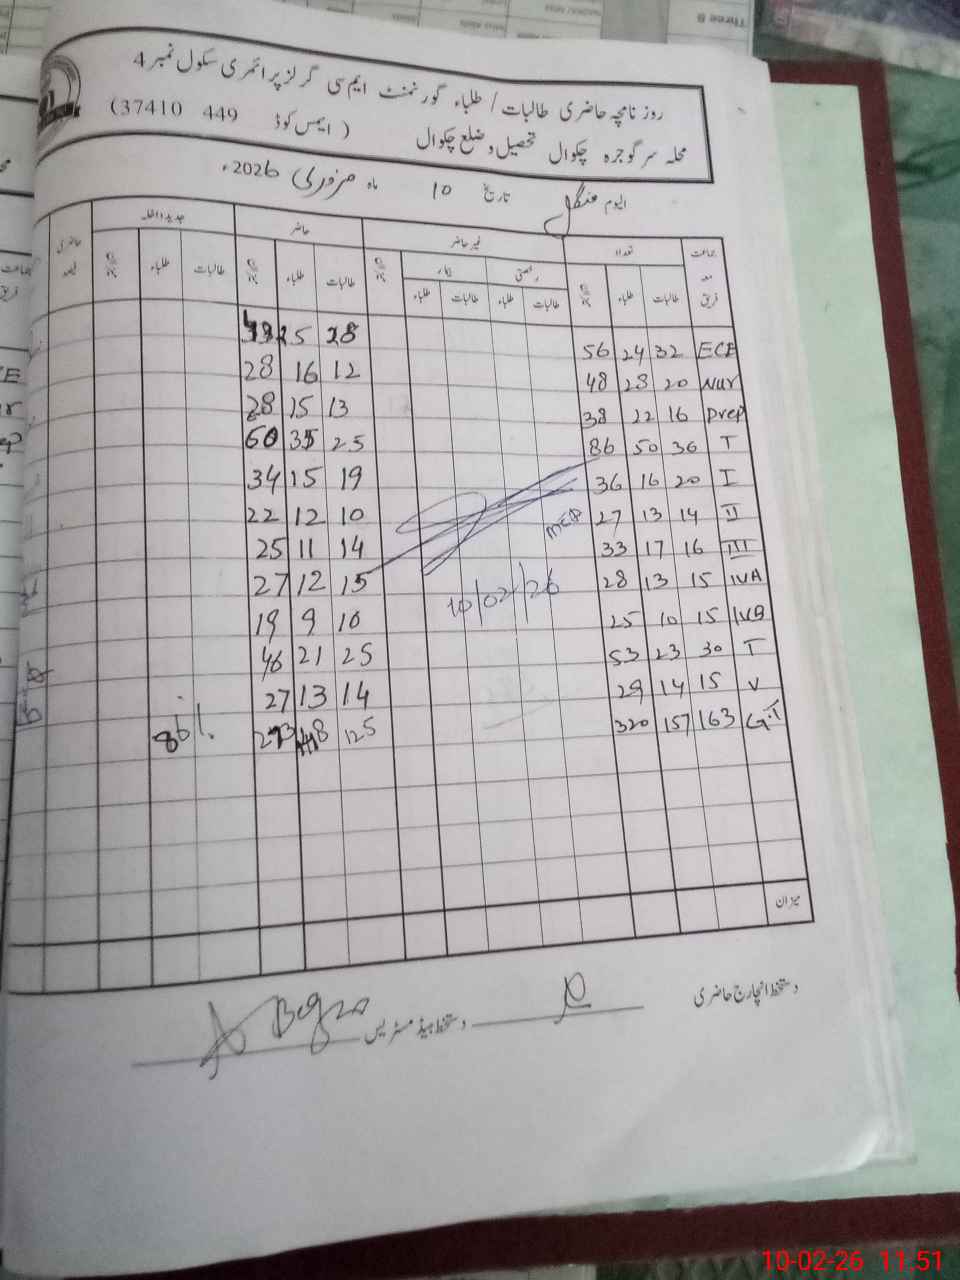 روزنامچہ حاضری طالبات / طلباء گورنمنٹ ایم سی گرلز پرائمری سکول نمبر 4
محلہ سرگوجرہ چکوال تحصیل و ضلع چکوال ( ایمس کوڈ 449 37410)
الیوم منگل تاریخ 10 ماہ فروری 2026ء
جماعت معہ فریق تعداد غیر حاضر حاضر جدید داخلہ حاضری فیصد
رخصتی بیمار
طالبات طلباء میزان طالبات طلباء طالبات طلباء میزان طالبات طلباء میزان طالبات طلباء میزان
ECE 32 24 56 28 25
Nur 20 28 48 12 16 28
Prep 16 22 38 13 15 28
T 36 50 86 25 35 60
I 20 16 36 19 15 34
II 14 13 27 10 12 22
III 16 17 33 14 11 25
IVA 15 13 28 15 12 27
IVB 15 10 25 10 9 19
T 30 23 53 25 21 46
V 15 14 29 14 13 27
G.T 163 157 320 125 148 273 86%
MEA
10/02/26
میزان
دستخط انچارج حاضری
دستخط ہیڈ مسٹریس
Three B
10-02-26 11.51